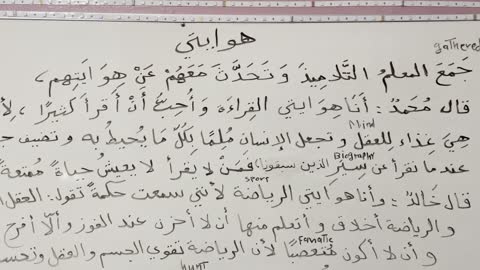 هوايتي
gathered
جَمَعَ المعلمُ التَّلاميذَ وَتَحَدَّثَ مَعَهُمْ عَنْ هِوَايَتِهِم،
قال مُحَمَّدٌ: أَنَا هوايتي القِراءَة وَأُحِبُّ أَنْ أَقرأَ كَثِيرًا،
Mind
هِيَ غِذاء للعقل وتجعل الإنسان مُلمًا بِكُلِّ مَا يُحيطُ به وتضيف
Biography
عندما نقرأ عن سير (الذين سبقونا) فَمَنْ لا يقرأ لا يعيش حياةً ممتعةً
sport
قال خَالدٌ: وأنا هوايتي الرياضة لأنني سمعت حكمةً تقول: العقل
و الرياضة أخلاق وأتعلم منها أن لا أحزن عند الفوز وألّا أفرح
Fanatic
وأن لا أكون مُتعصبًا لأن الرياضة تقوي الجسم والعقل
hunt